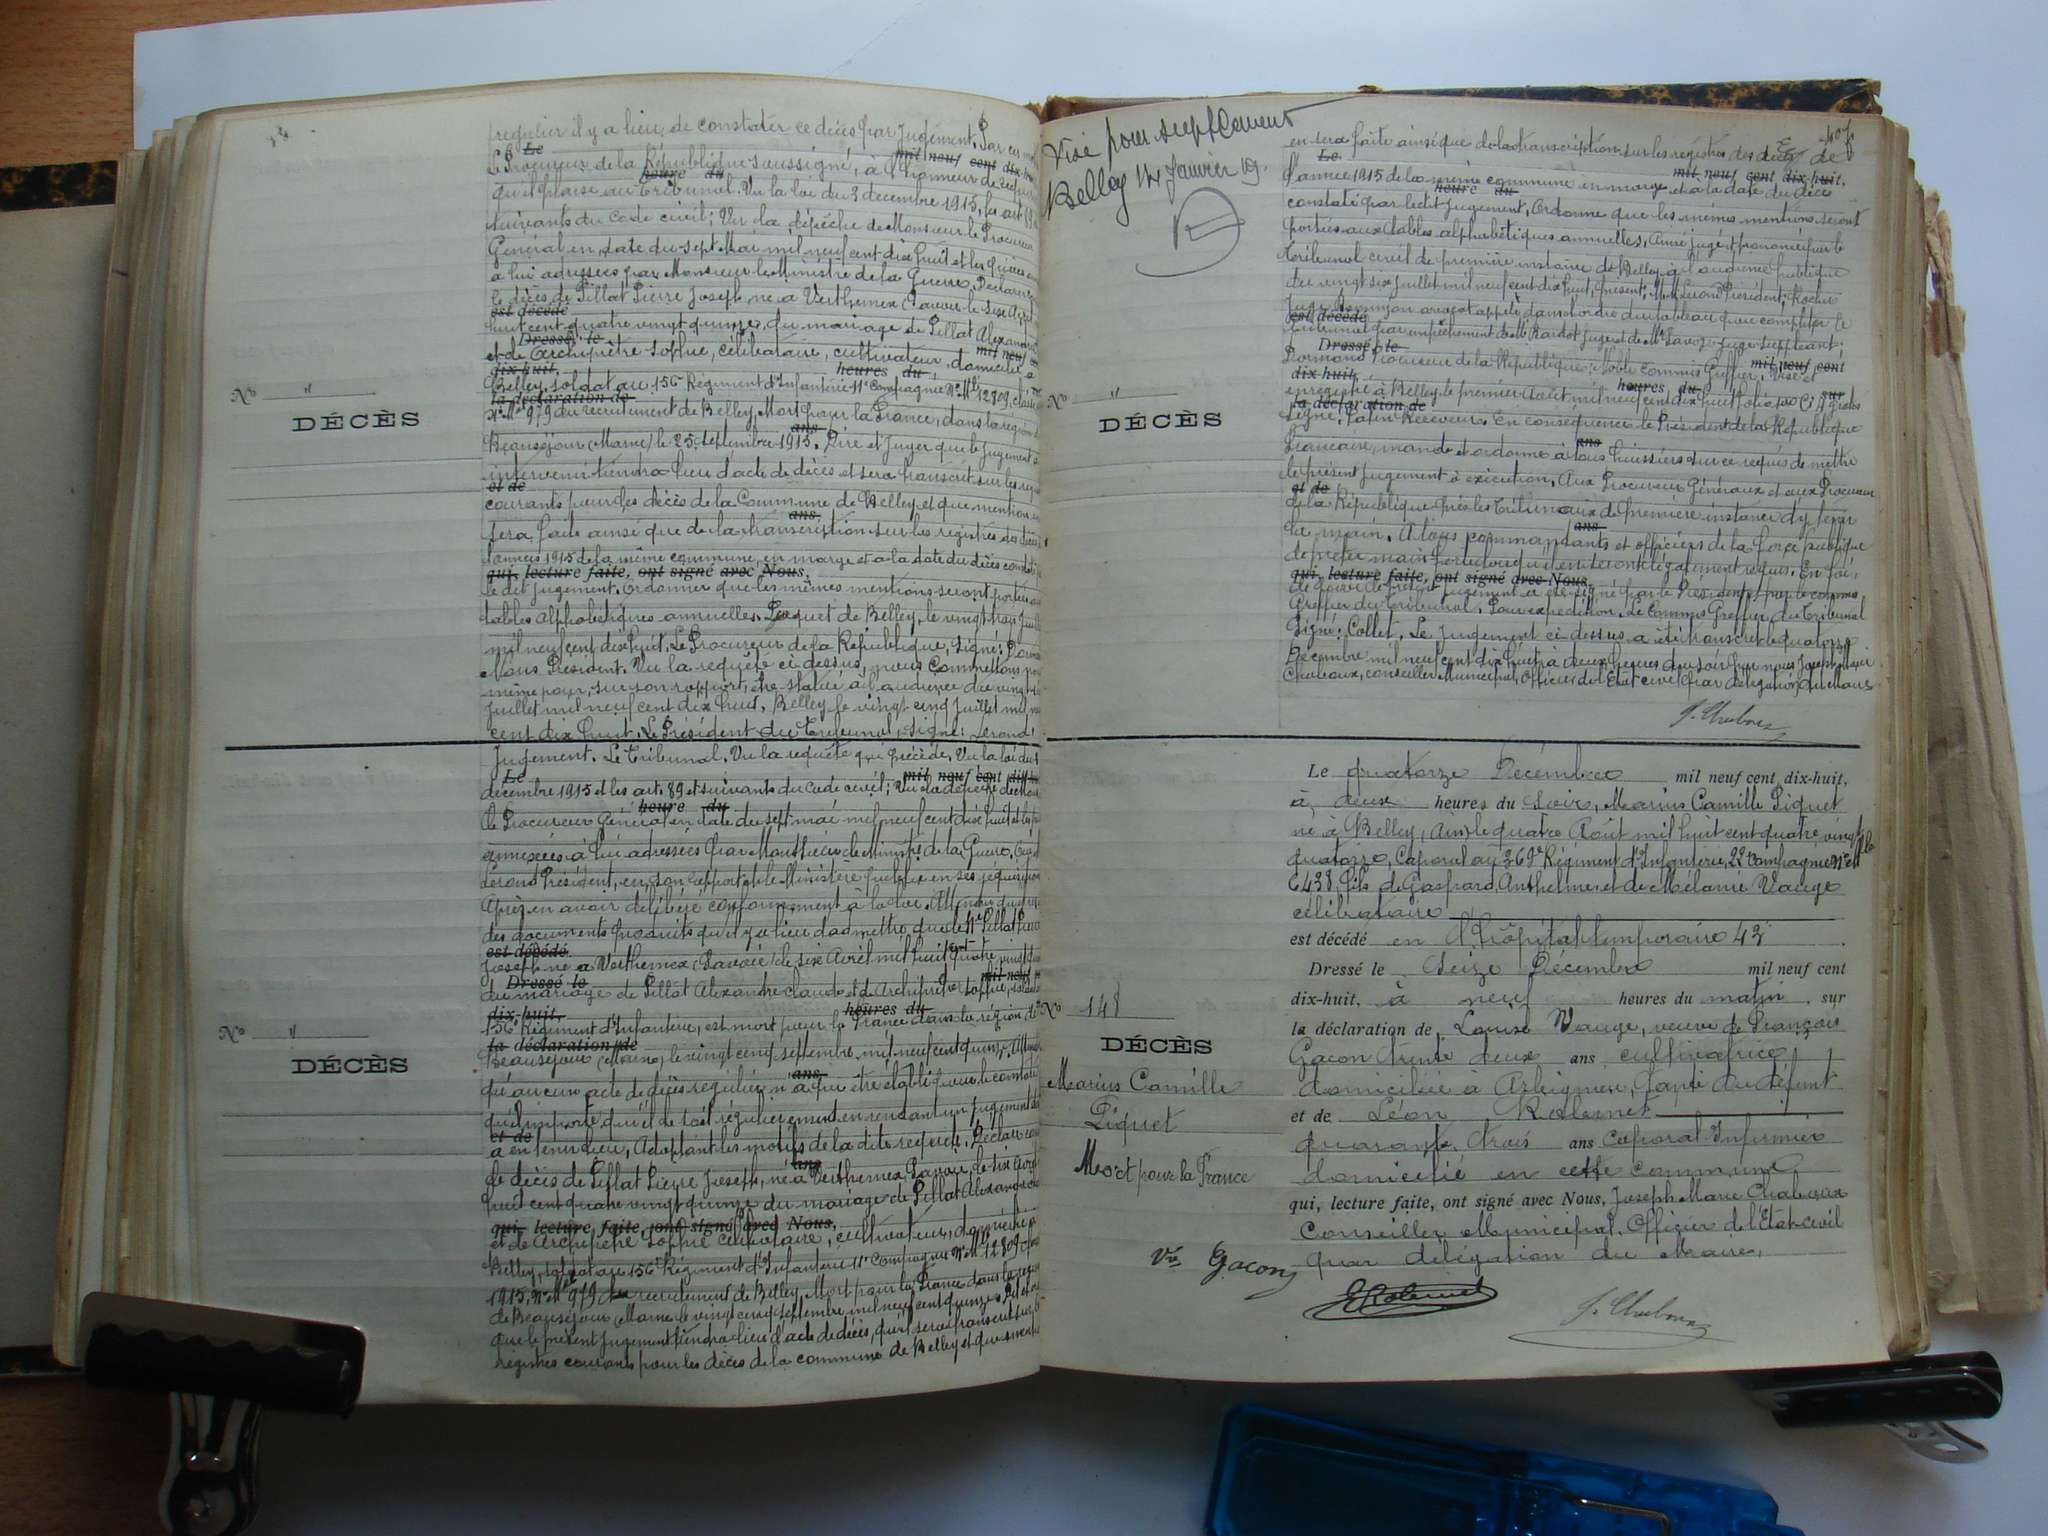 régulier il y a lieu de constater ce décès par Jugement. Par ces
Le
Le Procureur de la République soussigné, à l'honneur de
mil neuf cent dix-huit
heure du
qu'il plaise au Tribunal. Vu la loi du 3 décembre 1915, les art 89
suivants du Code civil; Vu la dépêche de Monsieur le Procureur
Général en date du sept Mai mil neuf cent dix huit et les pièces
à lui adressées par Monsieur le Ministre de la Guerre. Déclarer
le décès de Pillat Pierre Joseph, né à Verthemex (Savoie) le six Avril
est décédé
huit cent quatre vingt quinze, du mariage de Pillat Alexandre
Dressé le
mil neuf
et de Archiprêtre Sophie, célibataire, cultivateur, domicilié à
dix-huit,
heures du
Belley, soldat au 156e Régiment d'Infanterie 11e Compagnie No Mle 12809, classe
la déclaration de
No Mle 979 du recrutement de Belley, Mort pour la France, dans la région
ans
Beauséjour (Marne) le 25 septembre 1915. Dire et Juger que le Jugement
intervenir tiendra lieu d'acte de décès et sera transcrit sur les
et de
courants pour les décès de la Commune de Belley et que mention
ans
sera faite ainsi que de la transcription sur les registres des décès
l'année 1915 de la même commune, en marge et à la date du décès
qui, lecture faite, ont signé avec Nous,
le dit Jugement. Ordonner que les mêmes mentions seront portées
tables alphabétiques annuelles. Parquet de Belley, le vingt trois Juillet
mil neuf cent dix huit. Le Procureur de la République, signé:
Nous Président. Vu la requête ci dessus, nous Commettons
même pour, sur son rapport, être statué à l'audience du vingt
Juillet mil neuf cent dix huit. Belley le vingt cinq Juillet mil
cent dix huit. Le Président du Tribunal, signé: Lerond
No "
DÉCÈS
Jugement. Le Tribunal. Vu la requête qui précède, Vu la loi du
Le
mil neuf cent dix-huit
décembre 1915 et les art. 89 et suivants du Code civil; Vu la dépêche de
heure du
le Procureur Général en date du sept mai mil neuf cent dix huit et les
annexées à lui adressées par Monsieur le Ministre de la Guerre. Ouï
Lerond Président, en son rapport et le Ministère public en ses réquisitions
Après en avoir délibéré conformément à la loi. Attendu que
des documents produits qu'il y a lieu d'admettre que le Nommé Pillat Pierre
est décédé
Joseph né à Verthemex (Savoie) le six Avril mil huit cent quatre vingt
Dressé le
mil neuf
du mariage de Pillat Alexandre Claude et de Archiprêtre Sophie, soldat
dix-huit,
heures du
156e Régiment d'Infanterie, est mort pour la France dans la région de
la déclaration de
Beauséjour (Marne) le vingt cinq septembre mil neuf cent quinze.
ans
qu'aucun acte de décès régulier n'a pu être établi pour le constater
qu'il importe qu'il le soit régulièrement en rendant un Jugement
et de
en tenir lieu, Adoptant les motifs de la dite requête. Déclare
ans
le décès de Pillat Pierre Joseph, né à Verthemex, Savoie, le six avril
huit cent quatre vingt quinze du mariage de Pillat Alexandre
qui, lecture faite, ont signé avec Nous,
et de Archiprêtre Sophie célibataire, cultivateur, domicilié à
Belley, soldat au 156e Régiment d'Infanterie 11e Compagnie No Mle 12809 classe
1915, No Mle 979 du recrutement de Belley, Mort pour la France dans la région
de Beauséjour (Marne le vingt cinq septembre mil neuf cent quinze. Dit
que le présent Jugement tiendra lieu d'acte de décès, qu'il sera transcrit sur
registres courants pour les décès de la commune de Belley et que mention
No "
DÉCÈS
Visé pour supplément
Belley 14 Janvier 19.
en sera faite ainsi que de la transcription sur les registres des décès de
Le
mil neuf cent dix-huit,
l'année 1915 de la même commune en marge et à la date du décès
heure du
constaté par le dit Jugement, Ordonne que les mêmes mentions seront
portées aux tables alphabétiques annuelles, Ainsi jugé et prononcé par le
Tribunal civil de première instance de Belley à l'audience publique
du vingt six Juillet mil neuf cent dix huit, présents: M.M. Lerond Président, Rochet
est décédé
Juge, avocat appelé dans l'ordre du tableau pour compléter le
Tribunal par empêchement de Mr juge et de Mr juge suppléant.
Dressé le
Procureur de la République; Noble Commis Greffier. Visé et
mil neuf cent
dix-huit,
heures du
sur
enregistré à Belley, le premier Août mil neuf cent dix huit
la déclaration de
Signé: Receveur. En conséquence le Président de la République
ans
Française, mande et ordonne à tous huissiers sur ce requis de mettre
le présent Jugement à exécution, Aux Procureurs Généraux et aux Procureurs
et de
de la République près les Tribunaux de première instance d'y tenir
ans
la main. A tous commandants et officiers de la force publique
de prêter main forte lorsqu'ils en seront légalement requis. En foi
qui, lecture faite, ont signé avec Nous,
de quoi le présent Jugement a été signé par le Président et par le commis
Greffier du Tribunal. Pour expédition. Le Commis Greffier du Tribunal
Signé: Collet. Le Jugement ci-dessus a été transcrit le quatorze
Décembre mil neuf cent dix huit à deux heures du soir par nous Joseph Marie
Chaboux, conseiller Municipal, Officier de l'Etat civil par délégation du Maire
J. Chaboux
No "
DÉCÈS
Le quatorze Décembre mil neuf cent, dix-huit,
à deux heures du soir, Marius Camille Piquet
né à Belley, Ain, le quatre Août mil huit cent quatre vingt
quatorze, Caporal au 369e Régiment d'Infanterie, 22e Compagnie No Mle
6438, fils de Gaspard, Anthelme et de Mélanie Vauge
célibataire
est décédé en l'hôpital temporaire 43
Dressé le seize Décembre mil neuf cent
dix-huit, à neuf heures du matin, sur
la déclaration de Louise Vauge, veuve de François
Gacon trente deux ans cultivatrice
domiciliée à Arbignieu, tante du défunt
et de Léon
quarante trois ans caporal Infirmier
domicilié en cette commune
qui, lecture faite, ont signé avec Nous, Joseph Marie Chaboux
Conseiller Municipal, Officier de l'Etat-civil
par délégation du Maire,
No 148
DÉCÈS
Marius Camille
Piquet
Mort pour la France
Vve Gacon
J. Chaboux